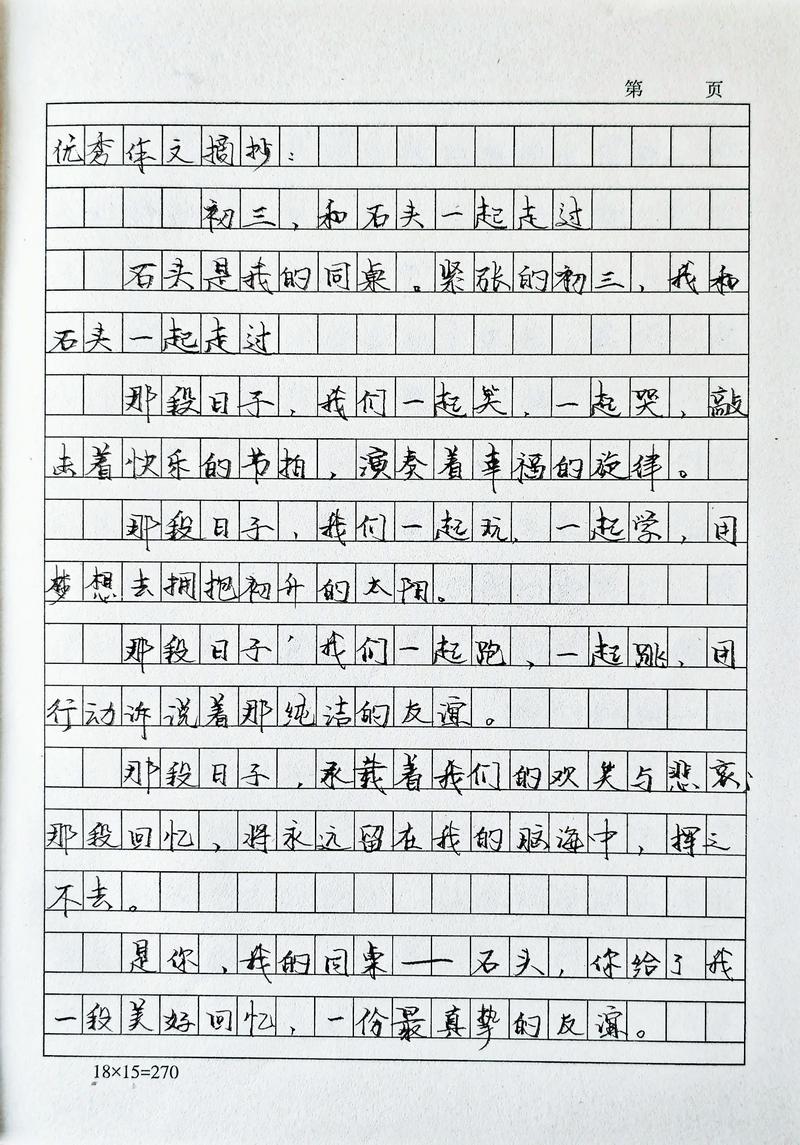 第 页
优秀作文摘抄：
初三，和石头一起走过
石头是我的同桌。紧张的初三，我和
石头一起走过
那段日子，我们一起笑，一起哭，敲
击着快乐的节拍，演奏着幸福的旋律。
那段日子，我们一起玩，一起学，用
梦想去拥抱初升的太阳。
那段日子，我们一起跑，一起跳，用
行动诉说着那纯洁的友谊。
那段日子，承载着我们的欢笑与悲哀；
那段回忆，将永远留在我的脑海中，挥之
不去。
是你，我的同桌——石头，你给了我
一段美好回忆，一份最真挚的友谊。
18×15=270